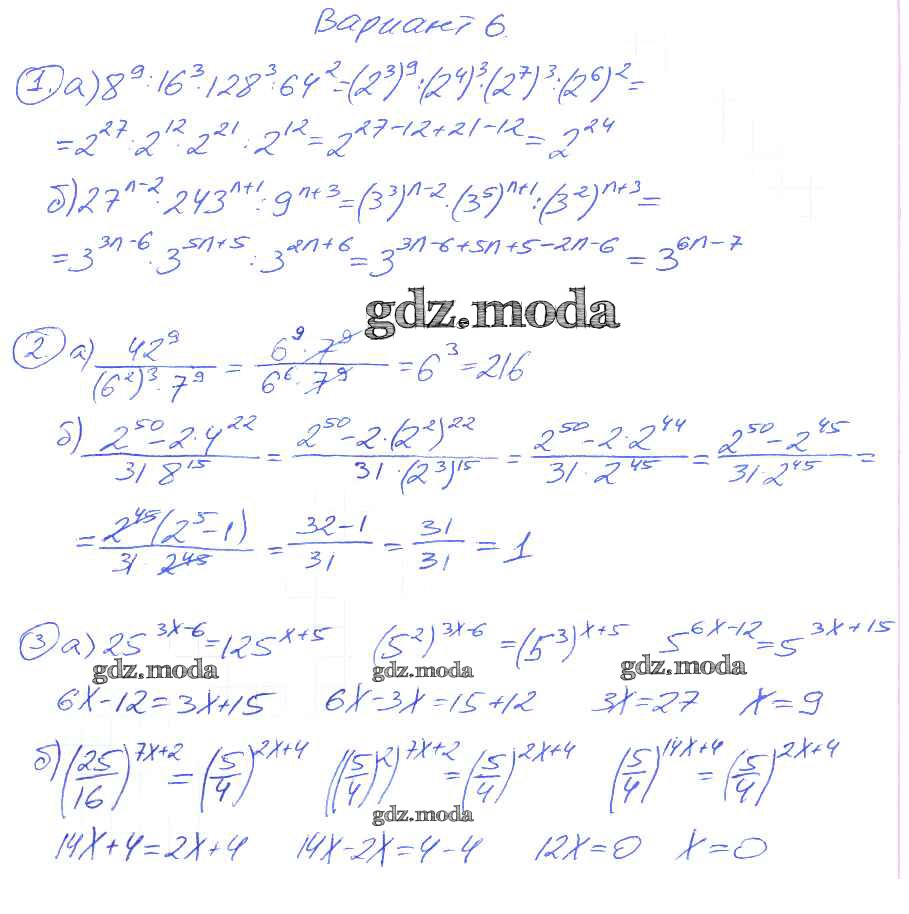 Вариант 6.
1. а) 8^9 : 16^3 · 128^3 : 64^2 = (2^3)^9 : (2^4)^3 · (2^7)^3 : (2^6)^2 =
= 2^27 : 2^12 · 2^21 : 2^12 = 2^(27-12+21-12) = 2^24
б) 27^(n-2) · 243^(n+1) : 9^(n+3) = (3^3)^(n-2) · (3^5)^(n+1) : (3^2)^(n+3) =
= 3^(3n-6) · 3^(5n+5) : 3^(2n+6) = 3^(3n-6+5n+5-2n-6) = 3^(6n-7)
gdz.moda
2. а) 42^9 / ((6^2)^3 · 7^9) = (6^9 · 7^9) / (6^6 · 7^9) = 6^3 = 216
б) (2^50 - 2·4^22) / (31 · 8^15) = (2^50 - 2·(2^2)^22) / (31 · (2^3)^15) = (2^50 - 2·2^44) / (31 · 2^45) = (2^50 - 2^45) / (31 · 2^45) =
= 2^45(2^5 - 1) / (31 · 2^45) = (32-1) / 31 = 31/31 = 1
3. а) 25^(3x-6) = 125^(x+5) (5^2)^(3x-6) = (5^3)^(x+5) 5^(6x-12) = 5^(3x+15)
gdz.moda gdz.moda gdz.moda
6x-12=3x+15 6x-3x=15+12 3x=27 x=9
б) (25/16)^(7x+2) = (5/4)^(2x+4) ((5/4)^2)^(7x+2) = (5/4)^(2x+4) (5/4)^(14x+4) = (5/4)^(2x+4)
gdz.moda
14x+4=2x+4 14x-2x=4-4 12x=0 x=0